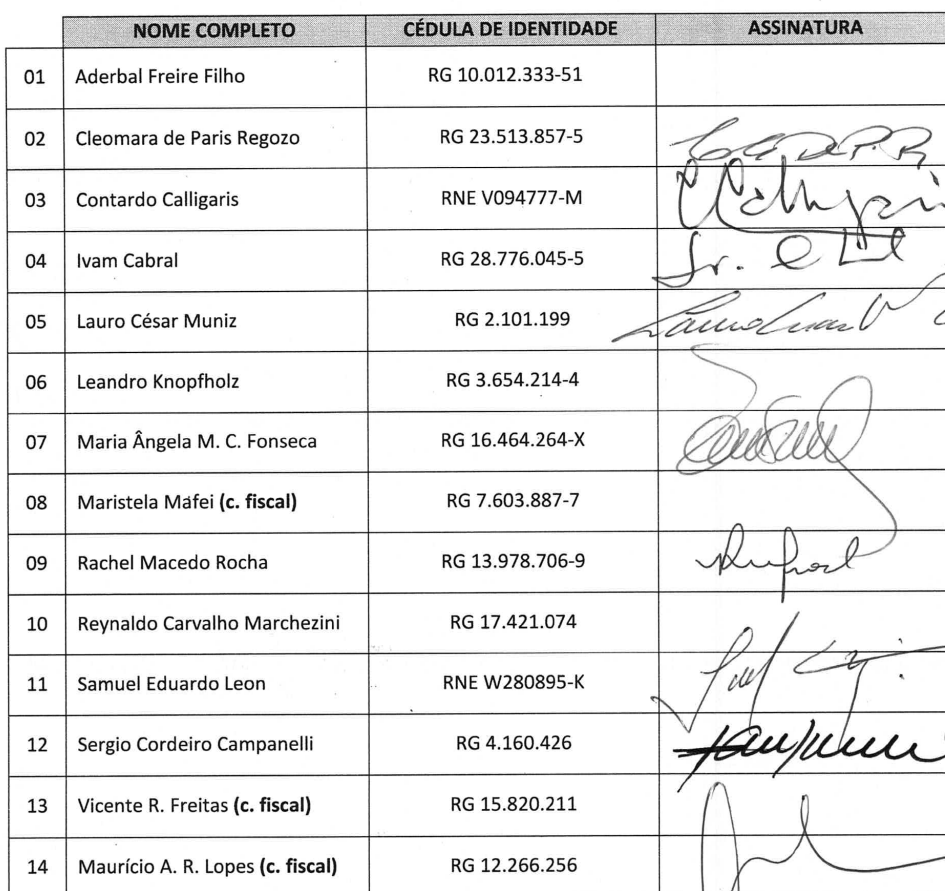 NOME COMPLETO CÉDULA DE IDENTIDADE ASSINATURA
01 Aderbal Freire Filho RG 10.012.333-51
02 Cleomara de Paris Regozo RG 23.513.857-5
03 Contardo Calligaris RNE V094777-M
04 Ivam Cabral RG 28.776.045-5
05 Lauro César Muniz RG 2.101.199
06 Leandro Knopfholz RG 3.654.214-4
07 Maria Ângela M. C. Fonseca RG 16.464.264-X
08 Maristela Mafei (c. fiscal) RG 7.603.887-7
09 Rachel Macedo Rocha RG 13.978.706-9
10 Reynaldo Carvalho Marchezini RG 17.421.074
11 Samuel Eduardo Leon RNE W280895-K
12 Sergio Cordeiro Campanelli RG 4.160.426
13 Vicente R. Freitas (c. fiscal) RG 15.820.211
14 Maurício A. R. Lopes (c. fiscal) RG 12.266.256